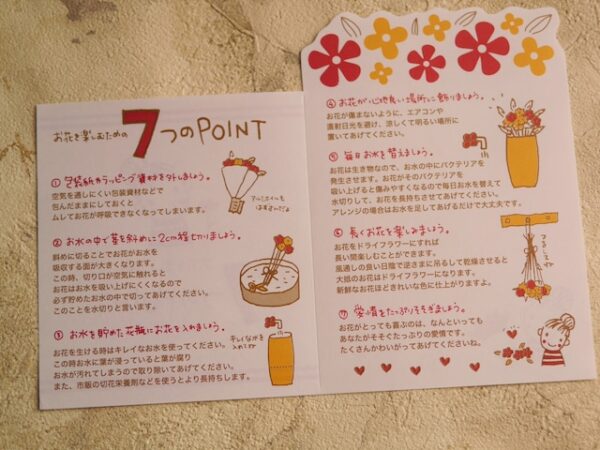 お花を楽しむための 7つのPOINT
① 包装紙やラッピング資材を外しましょう。
空気を通しにくい包装資材などで
包んだままにしておくと
ムレてお花が呼吸できなくなってしまいます。
アルミホイルも
はずすんだよ
② お水の中で茎を斜めに2cm程切りましょう。
斜めに切ることでお花がお水を
吸収する面が大きくなります。
この時、切り口が空気に触れると
お花はお水を吸い上げにくくなるので
必ず貯めたお水の中で切ってあげてください。
このことを水切りと言います。
③ お水を貯めた花瓶にお花を入れましょう。
お花を生ける時はキレイなお水を使ってください。
この時お水に葉が浸っていると葉が腐り
お水が汚れてしまうので取り除いてあげてください。
また、市販の切花栄養剤などを使うとより長持ちします。
キレイな水を
入れてね
④ お花が心地良い場所に飾りましょう。
お花が傷まないように、エアコンや
直射日光を避け、涼しくて明るい場所に
置いてあげてください。
⑤ 毎日お水を替えましょう。
お花は生き物なので、お水の中にバクテリアを
発生させます。お花がそのバクテリアを
吸い上げると傷みやすくなるので毎日お水を替えて
水切りして、お花を長持ちさせてあげてください。
アレンジの場合はお水を足してあげるだけで大丈夫です。
⑥ 長くお花を楽しみましょう。
お花をドライフラワーにすれば
長い間楽しむことができます。
風通しの良い日陰で逆さまに吊るして乾燥させると
大抵のお花はドライフラワーになります。
新鮮なお花ほどきれいな色に仕上がりますよ。
つるしてね
⑦ 愛情をたっぷりそそぎましょう。
お花がとっても喜ぶのは、なんといっても
あなたがそそぐたっぷりの愛情です。
たくさんかわいがってあげてくださいね。